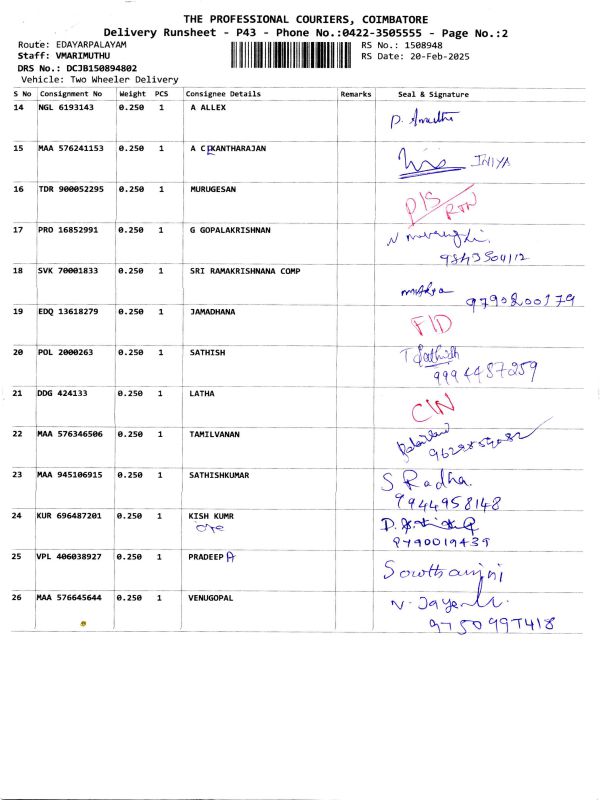 THE PROFESSIONAL COURIERS, COIMBATORE
Delivery Runsheet - P43 - Phone No.:0422-3505555 - Page No.:2
Route: EDAYARPALAYAM RS No.: 1508948
Staff: VMARIMUTHU RS Date: 20-Feb-2025
DRS No.: DCJB150894802
Vehicle: Two Wheeler Delivery
S No Consignment No Weight PCS Consignee Details Remarks Seal & Signature
14 NGL 6193143 0.250 1 A ALLEX
15 MAA 576241153 0.250 1 A C KANTHARAJAN INIYA
16 TDR 900052295 0.250 1 MURUGESAN P/S RTN
17 PRO 16852991 0.250 1 G GOPALAKRISHNAN
18 SVK 70001833 0.250 1 SRI RAMAKRISHNANA COMP
9790200179
19 EDQ 13618279 0.250 1 JAMADHANA F/D
20 POL 2000263 0.250 1 SATHISH T Sathish
9994487259
21 DDG 424133 0.250 1 LATHA C/N
22 MAA 576346506 0.250 1 TAMILVANAN
23 MAA 945106915 0.250 1 SATHISHKUMAR S Radha.
9944958148
24 KUR 696487201 0.250 1 KISH KUMR
9790019439
25 VPL 406038927 0.250 1 PRADEEP A
26 MAA 576645644 0.250 1 VENUGOPAL
9750997418